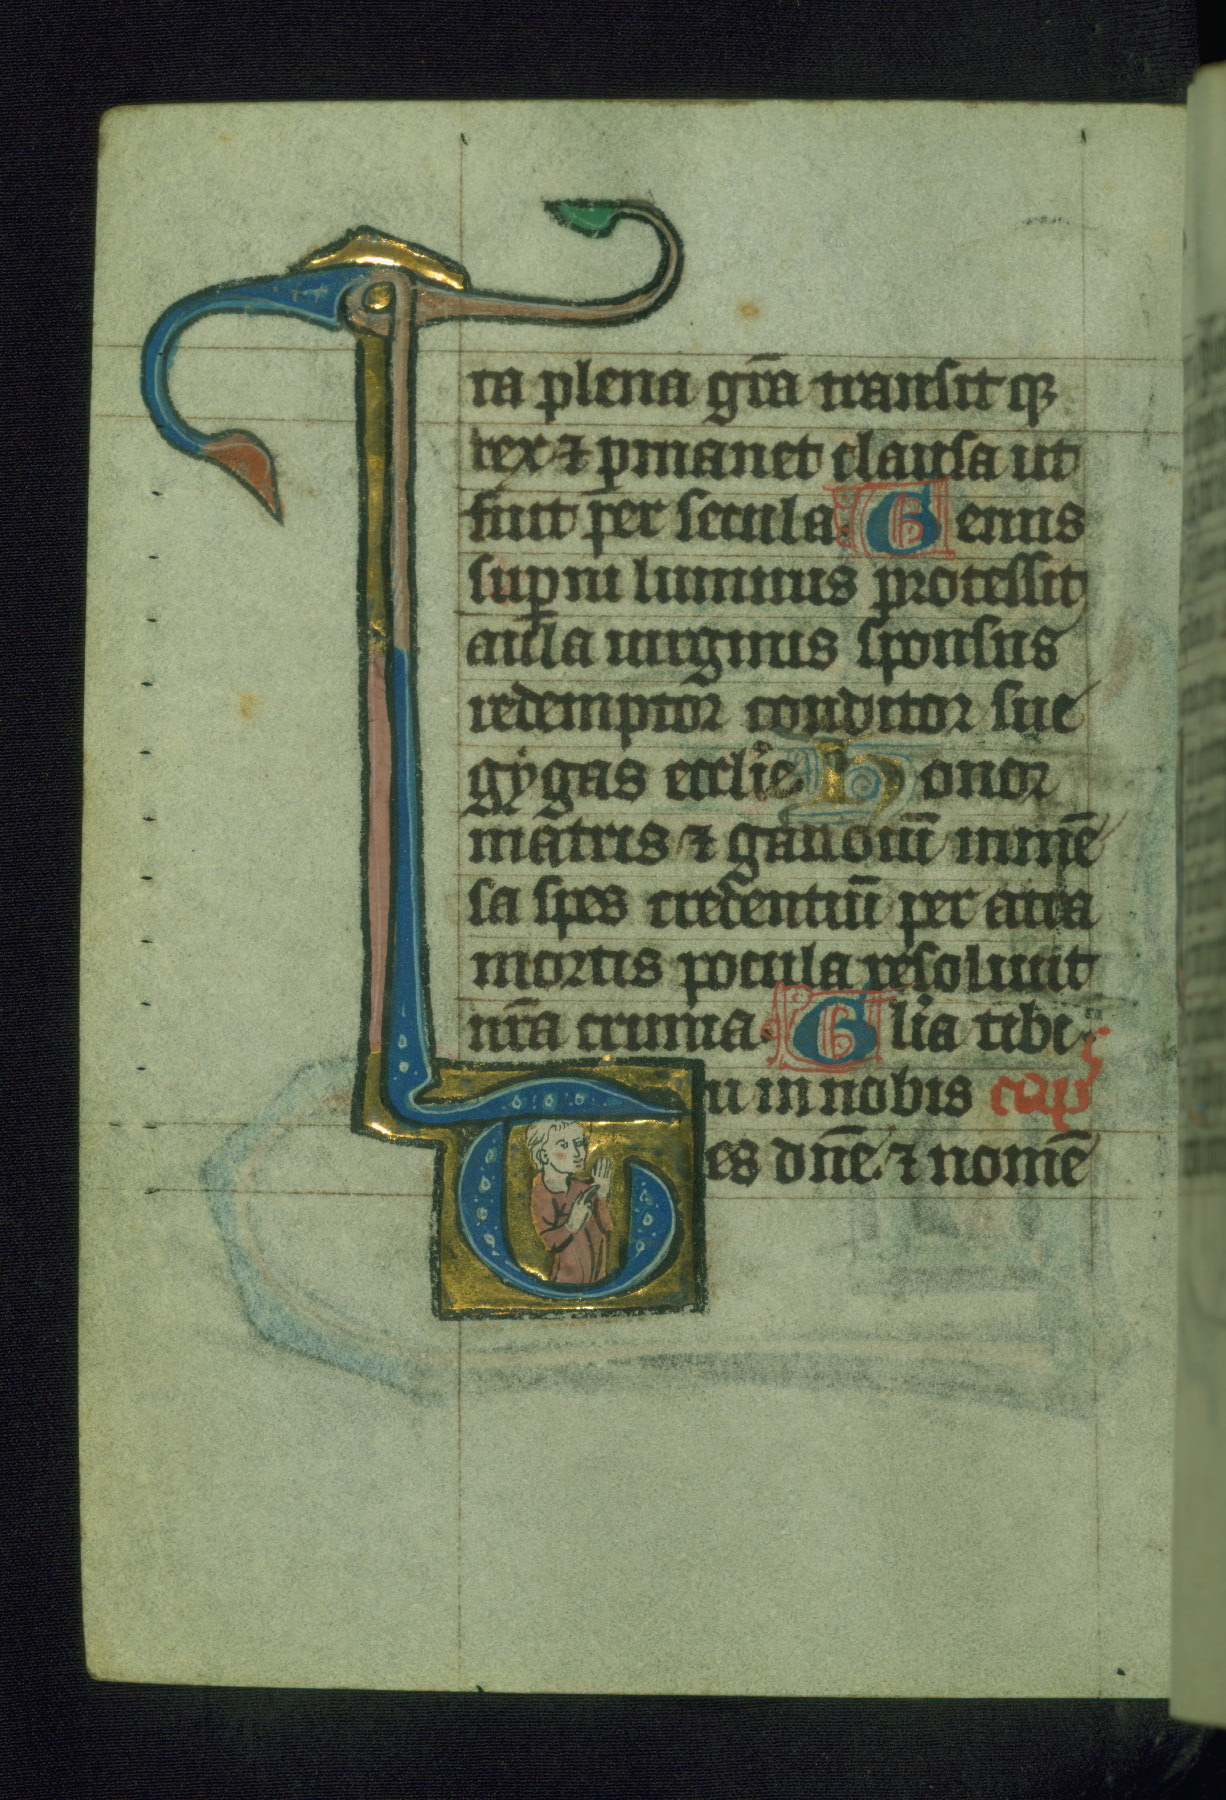 ta plena gr̄a transit q̄ꝫ
rex ⁊ ꝑmanet clausa ut
fuit per secula. Genus
suꝑni luminis processit
aula uirginis sponsus
redemptor conditor sue
gygas ecclīe Honor
matris ⁊ gaudiuꝫ inmē
sa spes credentiū per atra
mortis pocula resoluit
nr̄a crimina. Glīa tibi
Tu in nobis cap̄
es dn̄e. ⁊ nomē